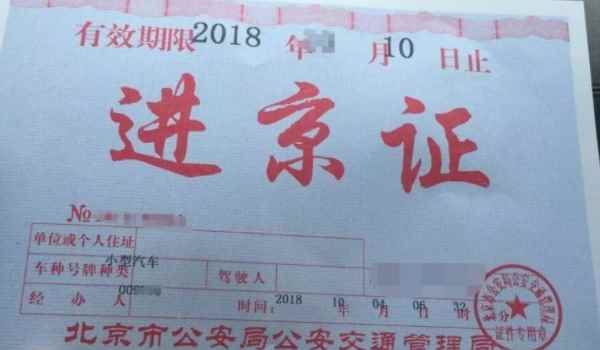 有效期限2018年 月10日止
进京证
No
单位或个人住址
车种号牌种类 小型汽车 驾驶人
经办人 时间:2018年10月04日06时32分
北京市公安局公安交通管理局
北京市公安局公安交通管理局
证件专用章